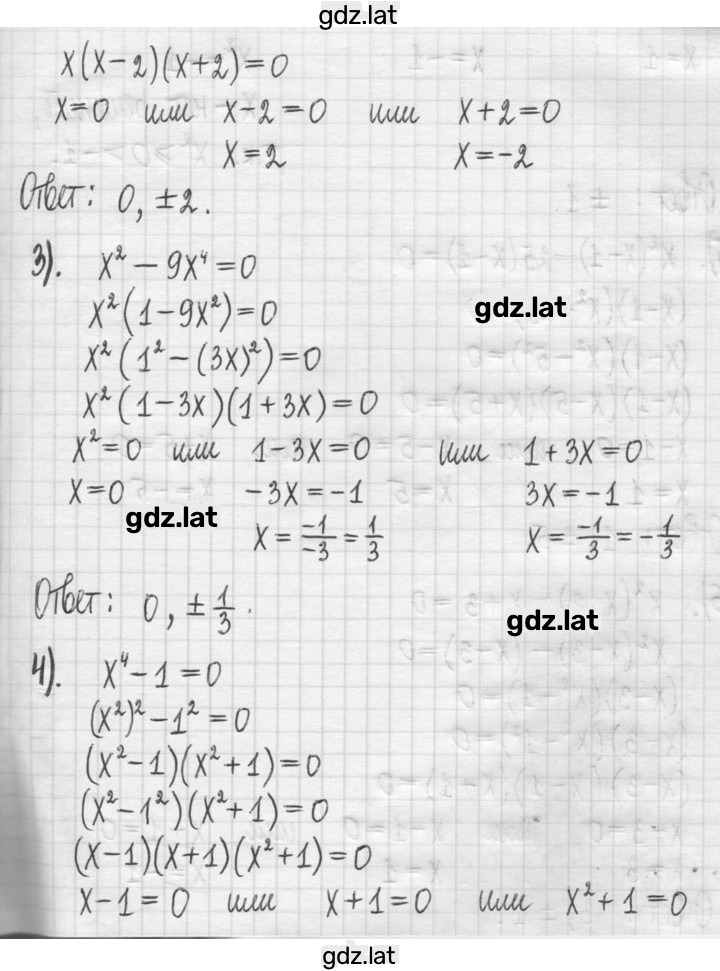 gdz.lat
x(x-2)(x+2)=0
x=0 или x-2=0 или x+2=0
x=2 x=-2
Ответ: 0, ±2.
3). x² - 9x⁴ = 0
x²(1-9x²)=0
gdz.lat
x²(1²-(3x)²)=0
x²(1-3x)(1+3x)=0
x²=0 или 1-3x=0 или 1+3x=0
x=0 -3x=-1 3x=-1
gdz.lat
x = -1/-3 = 1/3 x = -1/3 = -1/3
Ответ: 0, ± 1/3.
gdz.lat
4). x⁴-1=0
(x²)²-1²=0
(x²-1)(x²+1)=0
(x²-1²)(x²+1)=0
(x-1)(x+1)(x²+1)=0
x-1=0 или x+1=0 или x²+1=0
gdz.lat